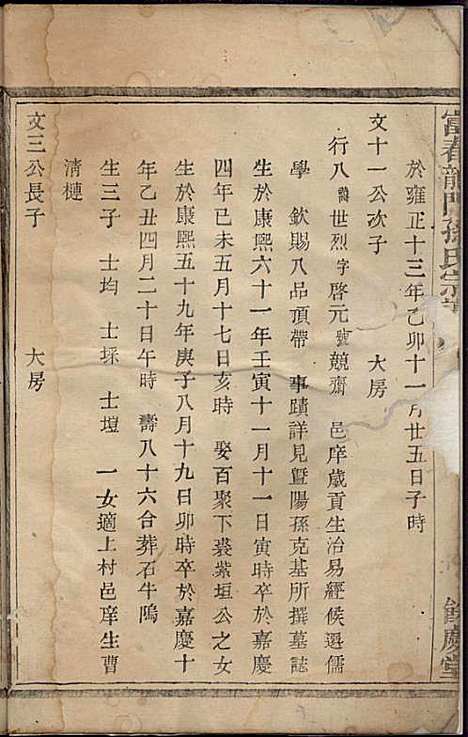 富春龍門孫氏宗譜
餘慶堂
於雍正十三年乙卯十一月廿五日子時
文十一公次子 大房
行八 諱世烈字啓元號競齋 邑庠歲貢生治易經候選儒
學 欽賜八品頂帶 事蹟詳見暨陽孫克基所撰墓誌
生於康熙六十一年壬寅十一月十一日寅時卒於嘉慶
四年己未五月十七日亥時 娶百聚下裘紫垣公之女
生於康熙五十九年庚子八月十九日卯時卒於嘉慶十
年乙丑四月二十日午時 壽八十六合葬石牛塢
生三子 士均 士埰 士塏 一女適上村邑庠生曹
清槤
文三公長子 大房